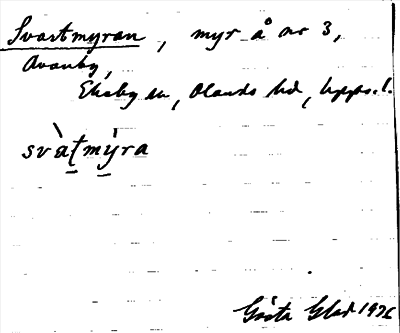 Svartmyran, myr å nr 3,
Avanby,
Ekeby sn, Olands hd, Upps. l.
svàtmýra
Gösta Glad 1926